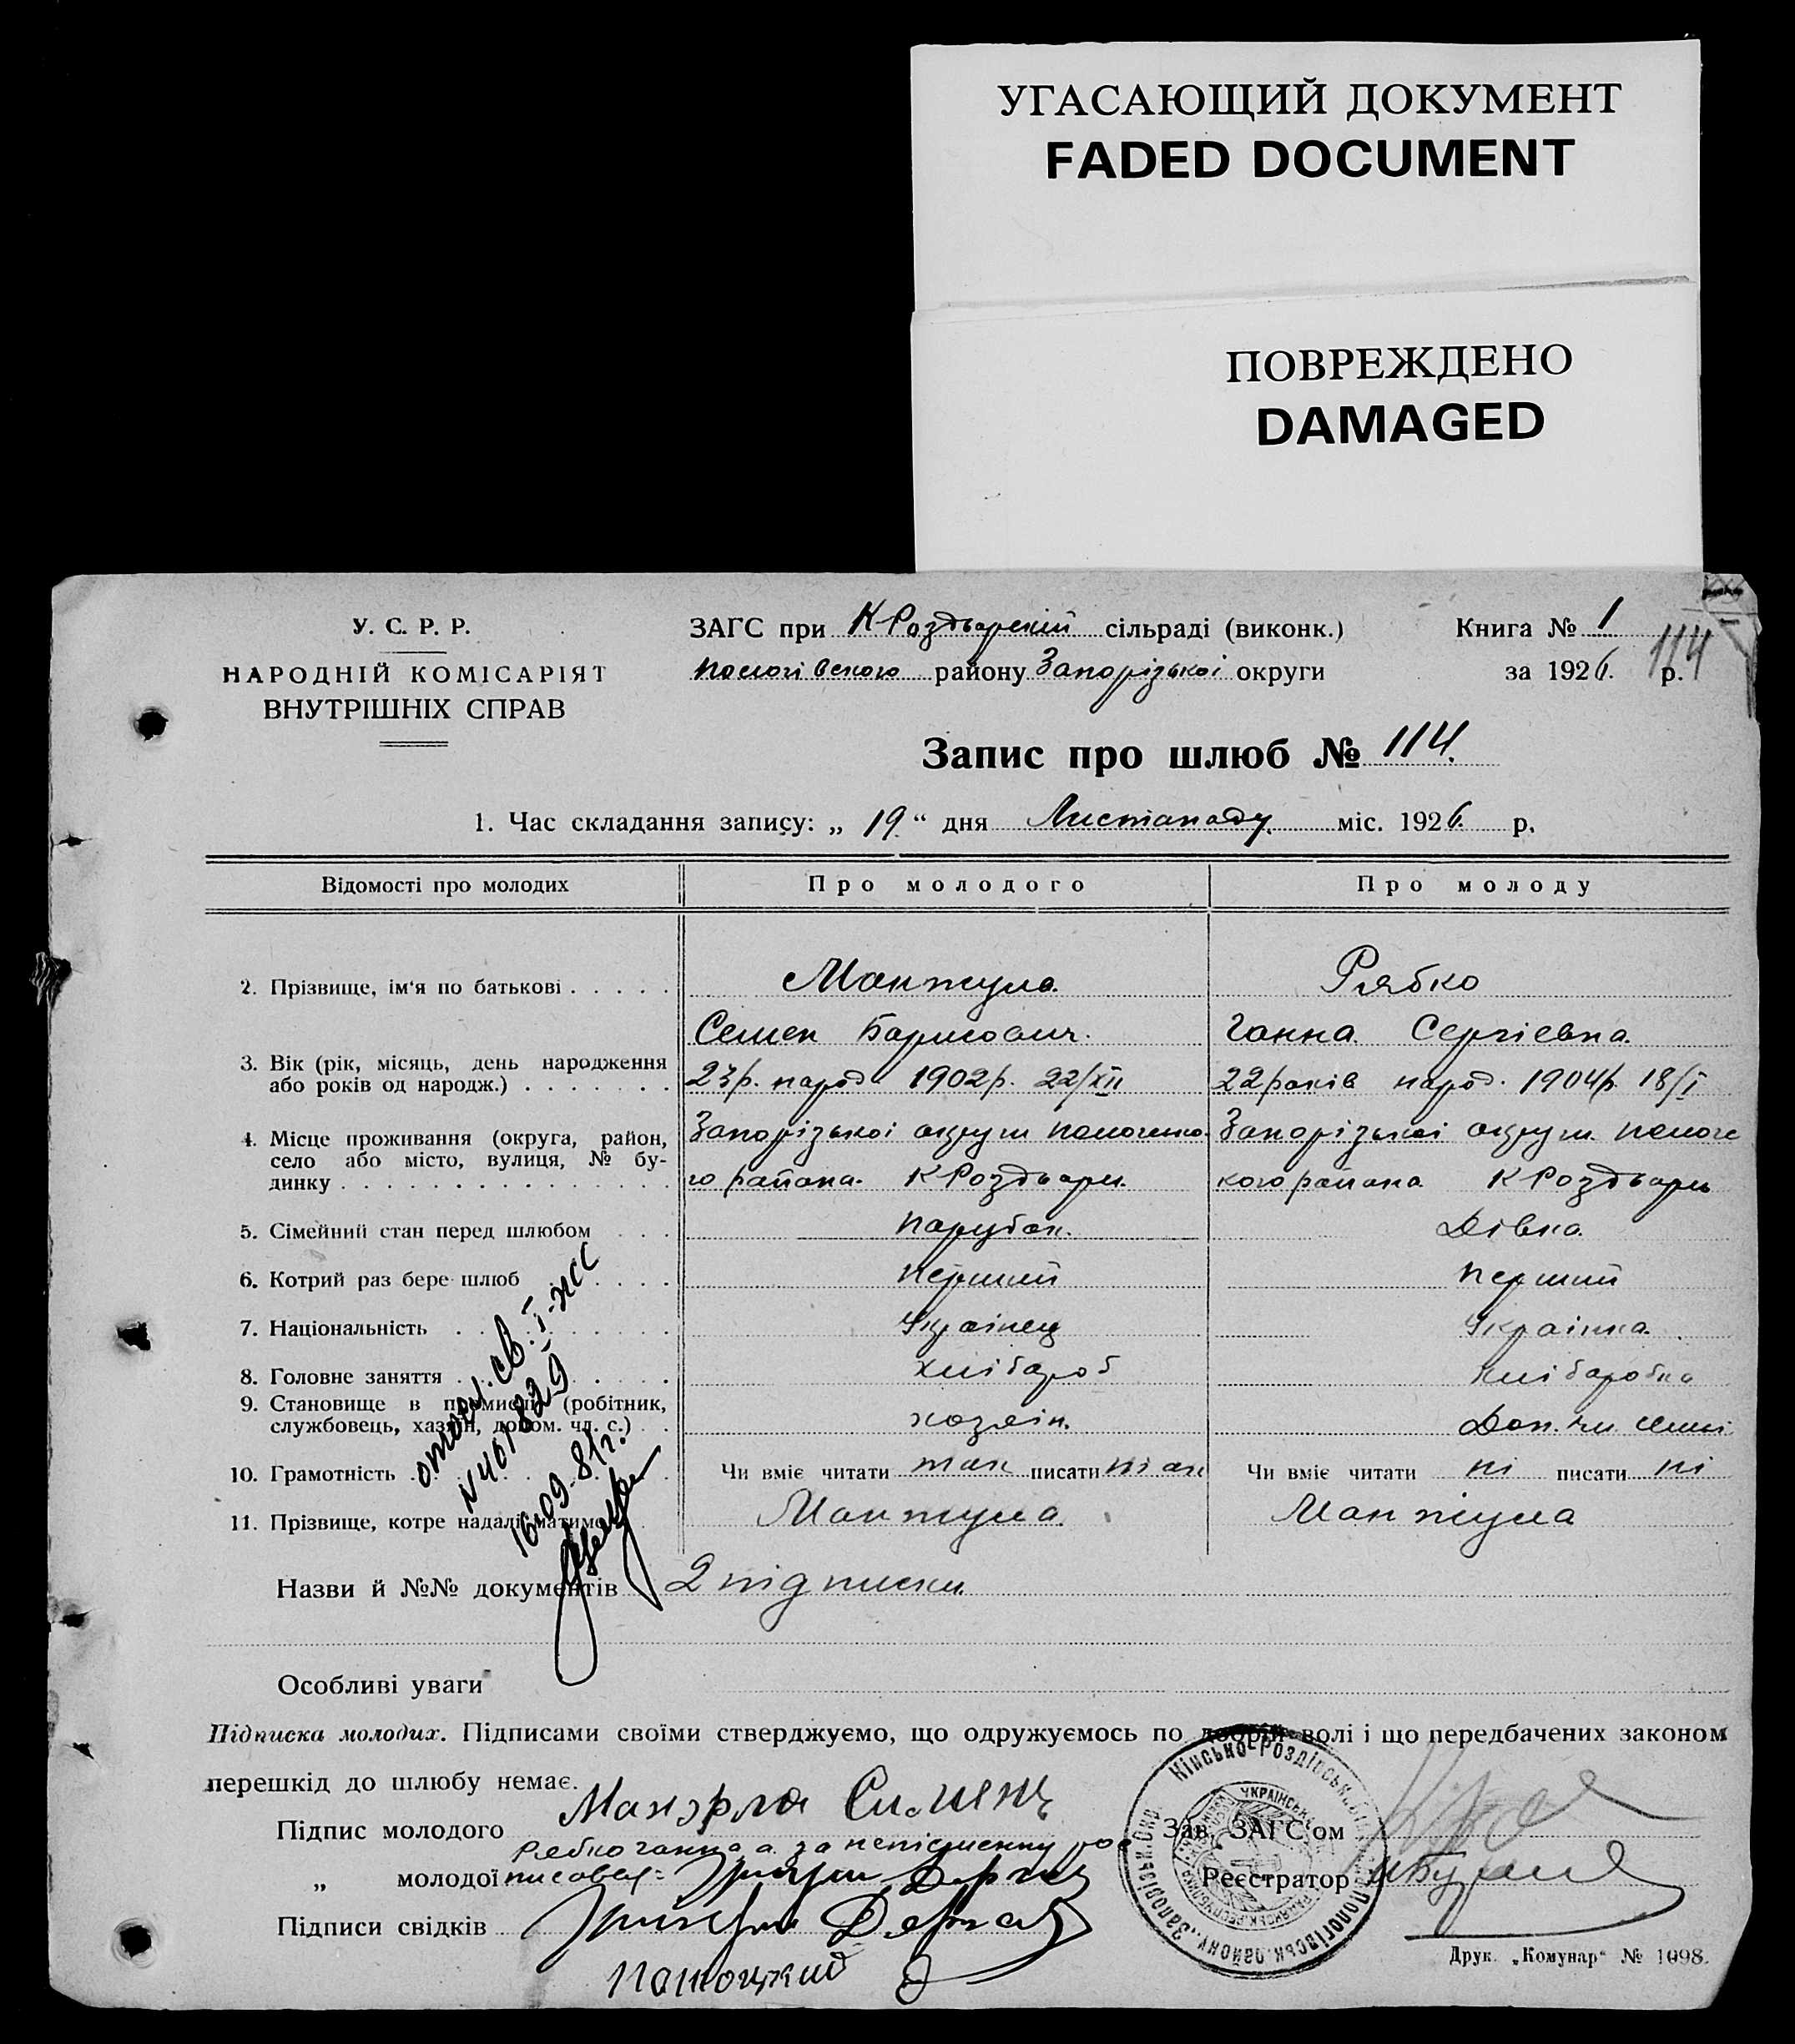 УГАСАЮЩИЙ ДОКУМЕНТ
FADED DOCUMENT
ПОВРЕЖДЕНО
DAMAGED
У. С. Р. Р.
НАРОДНІЙ КОМІСАРІЯТ
ВНУТРІШНІХ СПРАВ
ЗАГС при К Роздьорскій сільраді (виконк.)
пологівского району Запорізькоі округи
Книга № 1
за 1926. р.
114
Запис про шлюб № 114.
1. Час складання запису: „ 19. “ дня Листопаду міс. 1926. р.
Відомості про молодих
Про молодого
Про молоду
2. Прізвище, ім‘я по батькові . . . . .
Манжула
Семен Барисович.
Рябко
Ганна Сергіевна.
3. Вік (рік, місяць, день народження
або років од народж.) . . . . . . .
23р. народ. 1902р. 22/XII
22 років народ. 1904р. 18/I
4. Місце проживання (округа, район,
село або місто, вулиця, № бу-
динку . . . . . . . . . . . . . . .
Запорізькоі округи
го района. К Роздьори.
Запорізькоі округи.
кого района К Роздьори
5. Сімейний стан перед шлюбом . . .
Парубок.
Дівка.
6. Котрий раз бере шлюб . . . . .
Перший
Перший
7. Національність . . . . . . . . .
Украінец
Украінка.
8. Головне заняття . . . . . . . .
хлібароб
хлібаробка
9. Становище в промислі (робітник,
службовець, хазяїн, допом. чл. с.) . .
хозяін.
Доп. чл. семьі
10. Грамотність . . . . . . . . . .
Чи вміє читати так писати так
Чи вміє читати ні писати ні
11. Прізвище, котре надалі матиме . .
Манжула
Манжула
№ 401829
16.09.81г.
Назви й №№ документів 2 підписки
Особливі уваги
Підписка молодих. Підписами своїми стверджуємо, що одружуємось по добрій волі і що передбачених законом
перешкід до шлюбу немає.
Підпис молодого
Рябко Ганна а за неписменну рос
„ молодої писався:
Підписи свідків
Зав. ЗАГС‘ом
Реєстратор
Друк. „Комунар“ № 1098.